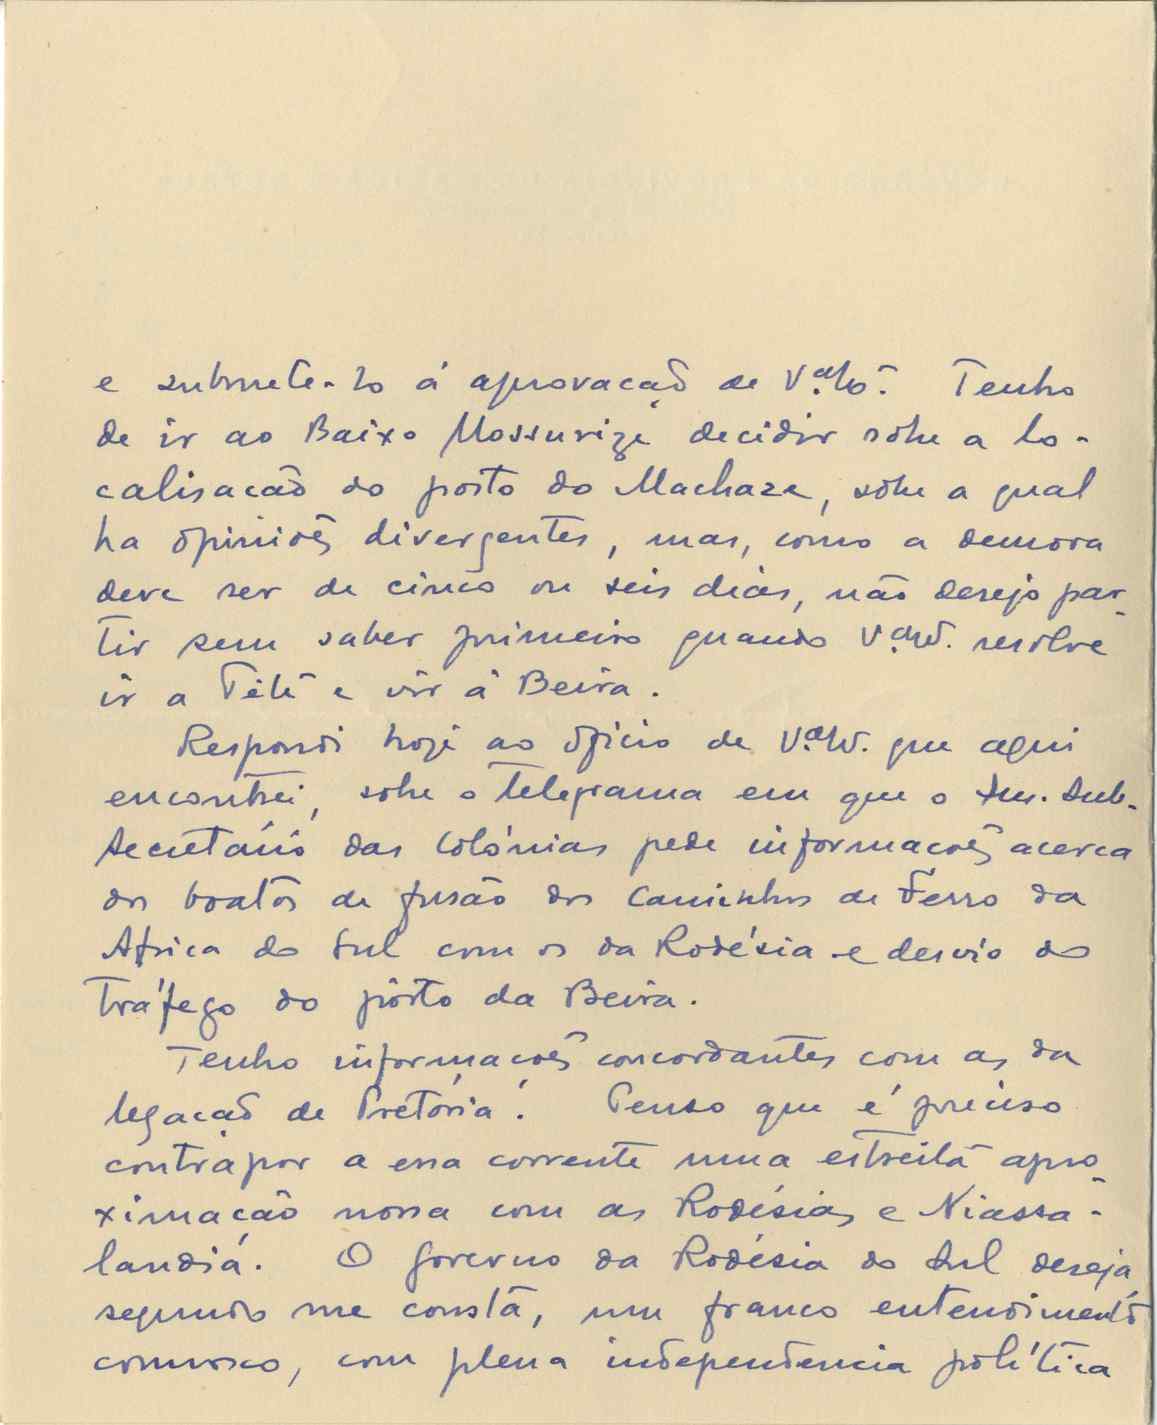 e submete-lo á aprovação de V.ª Ex.ª. Tenho
de ir ao Baixo Mossurize decidir sôbre a lo-
calisação do posto do Machaze, sôbre a qual
ha opiniões divergentes, mas, como a demora
deve ser de cinco ou seis dias, não desejo par-
tir sem saber primeiro quando V.ª Ex. resolve
ir a Téte e vir á Beira.
Respondi hoje ao oficio de V.ª Ex. que aqui
encontrei, sôbre o telegrama em que o Snr. Sub-
Secretário das Colónias pede informações acerca
dos boatos de fusão dos Caminhos de Ferro da
Africa do Sul com os da Rodésia e desvio do
tráfego do pôrto da Beira.
Tenho informações concordantes com as da
legação de Pretória. Penso que é preciso
contrapor a essa corrente uma estreita apro-
ximação nossa com as Rodésias e Niassa-
landia. O Governo da Rodésia do Sul deseja,
segundo me consta, um franco entendimento
comnosco, com plena independencia política